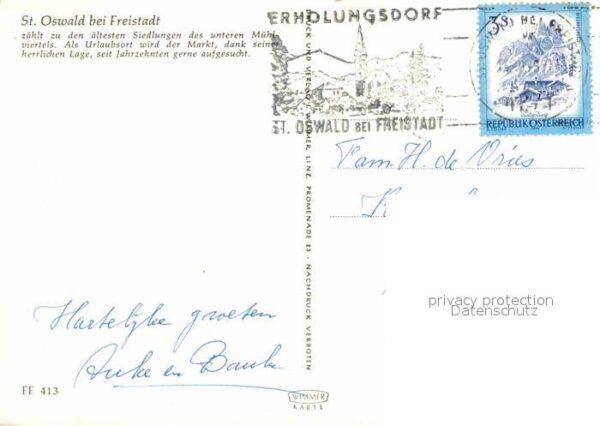 St. Oswald bei Freistadt
zählt zu den ältesten Siedlungen des unteren Mühl-
viertels. Als Urlaubsort wird der Markt, dank seiner
herrlichen Lage, seit Jahrzehnten gerne aufgesucht.
ERHOLUNGSDORF
ST. OSWALD BEI FREISTADT
REPUBLIK ÖSTERREICH
DRUCK UND VERLAG: WIMMER, LINZ, PROMENADE 23 - NACHDRUCK VERBOTEN
Fam. H. de Vries
privacy protection
Datenschutz
Hartelijke groeten
Anke en Bauke
FF 413
WIMMER
KARTE